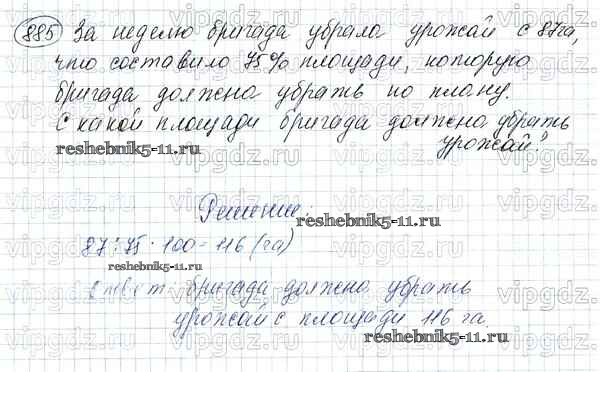 885 За неделю бригада убрала урожай с 87га,
что составило 75% площади, которую
бригада должна убрать по плану.
С какой площади бригада должна убрать
урожай?
reshebnik5-11.ru
Решение:
reshebnik5-11.ru
87:75·100=116 (га)
reshebnik5-11.ru
Ответ: бригада должна убрать
урожай с площади 116 га.
reshebnik5-11.ru
vipgdz.ru